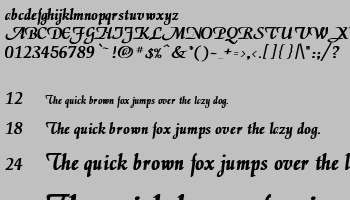 abcdefghijklmnopqrstuvwxyz
ABCDEFGHIJKLMNOPQRSTUVWX
0123456789 `~!@#$%^&*()-_+=>,<.[]{}|\":;/?
12 The quick brown fox jumps over the lazy dog.
18 The quick brown fox jumps over the lazy dog.
24 The quick brown fox jumps over the l